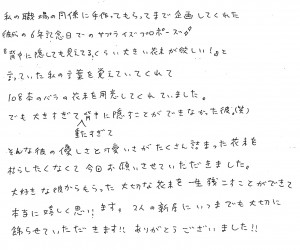 私の職場の同僚に手伝ってもらってまで企画してくれた
彼からの6年記念日でのサプライズプロポーズ
『背中に隠しても見えてるくらい大きい花束が欲しい!』と
言っていた私の言葉を覚えていてくれて
108本のバラの花束を用意してくれていました。
でも大きすぎて背中に隠すことができなかった彼。(笑)
重たすぎて
そんな彼の優しさと可愛いさがたくさん詰まった花束を
枯らしたくなくて今回お願いさせていただきました。
大好きな彼からもらった大切な花束を一生残すことができて
本当に嬉しく思います。2人の新居にいつまでも大切に
飾らせていただきます!! ありがとうございました!!